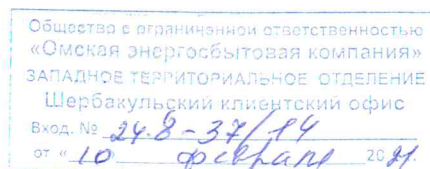 Общество с ограниченной ответственностью
«Омская энергосбытовая компания»
ЗАПАДНОЕ ТЕРРИТОРИАЛЬНОЕ ОТДЕЛЕНИЕ
Шербакульский клиентский офис
Вход. № 24.8-37/14
от « 10 февраля 2021.